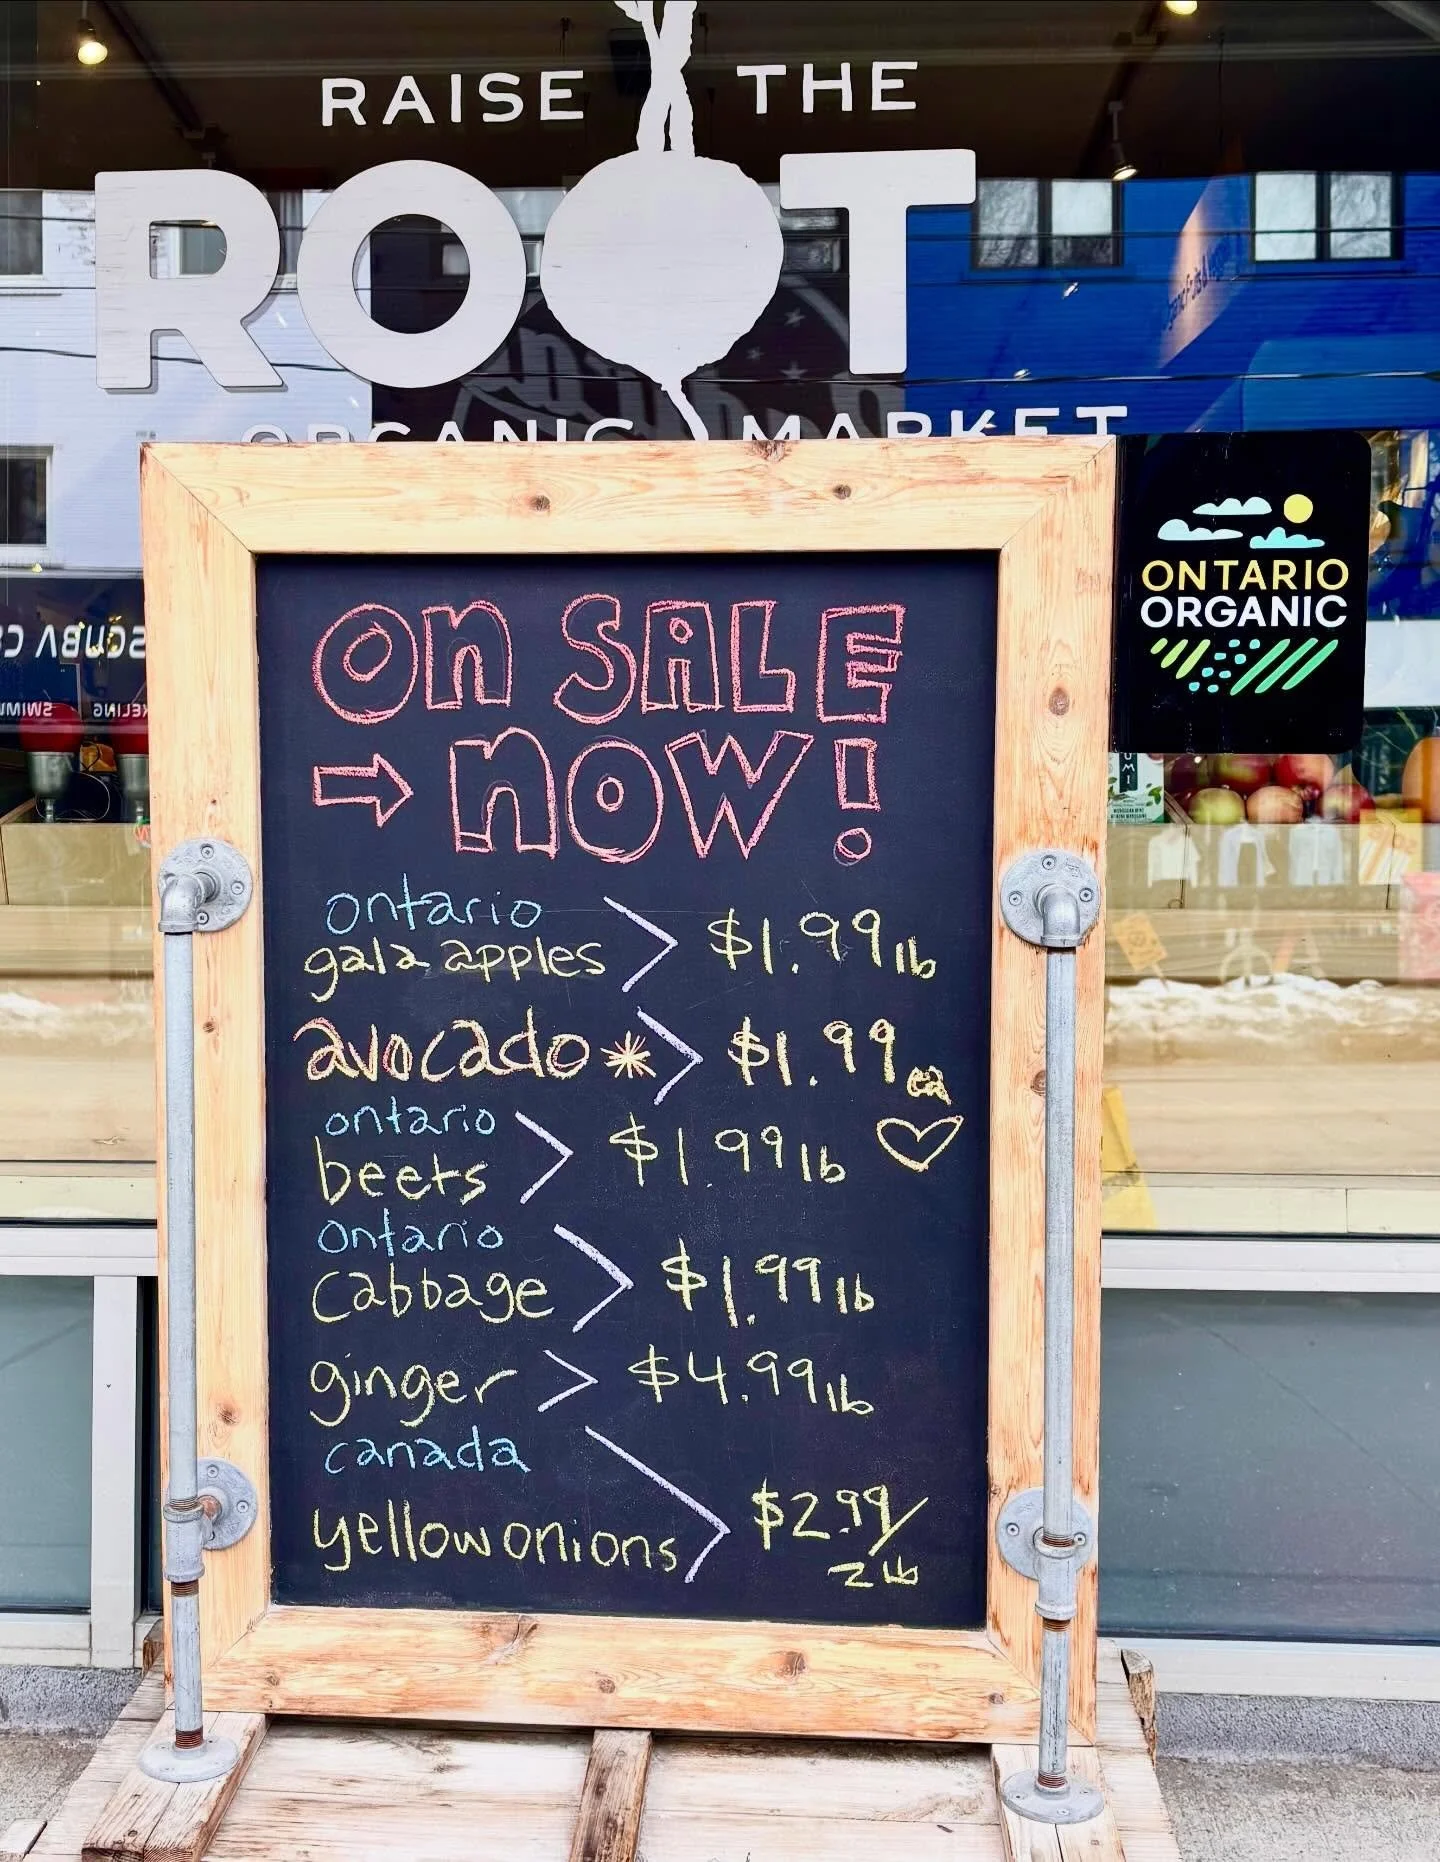 RAISE THE
ROOT
ORGANIC MARKET
ONTARIO
ORGANIC
on SALE
now!
ontario
gala apples $1.99 lb
avocado * $1.99 ea
ontario
beets $1.99 lb
ontario
cabbage $1.99 lb
ginger $4.99 lb
canada
yellow onions $2.99/
2 lb